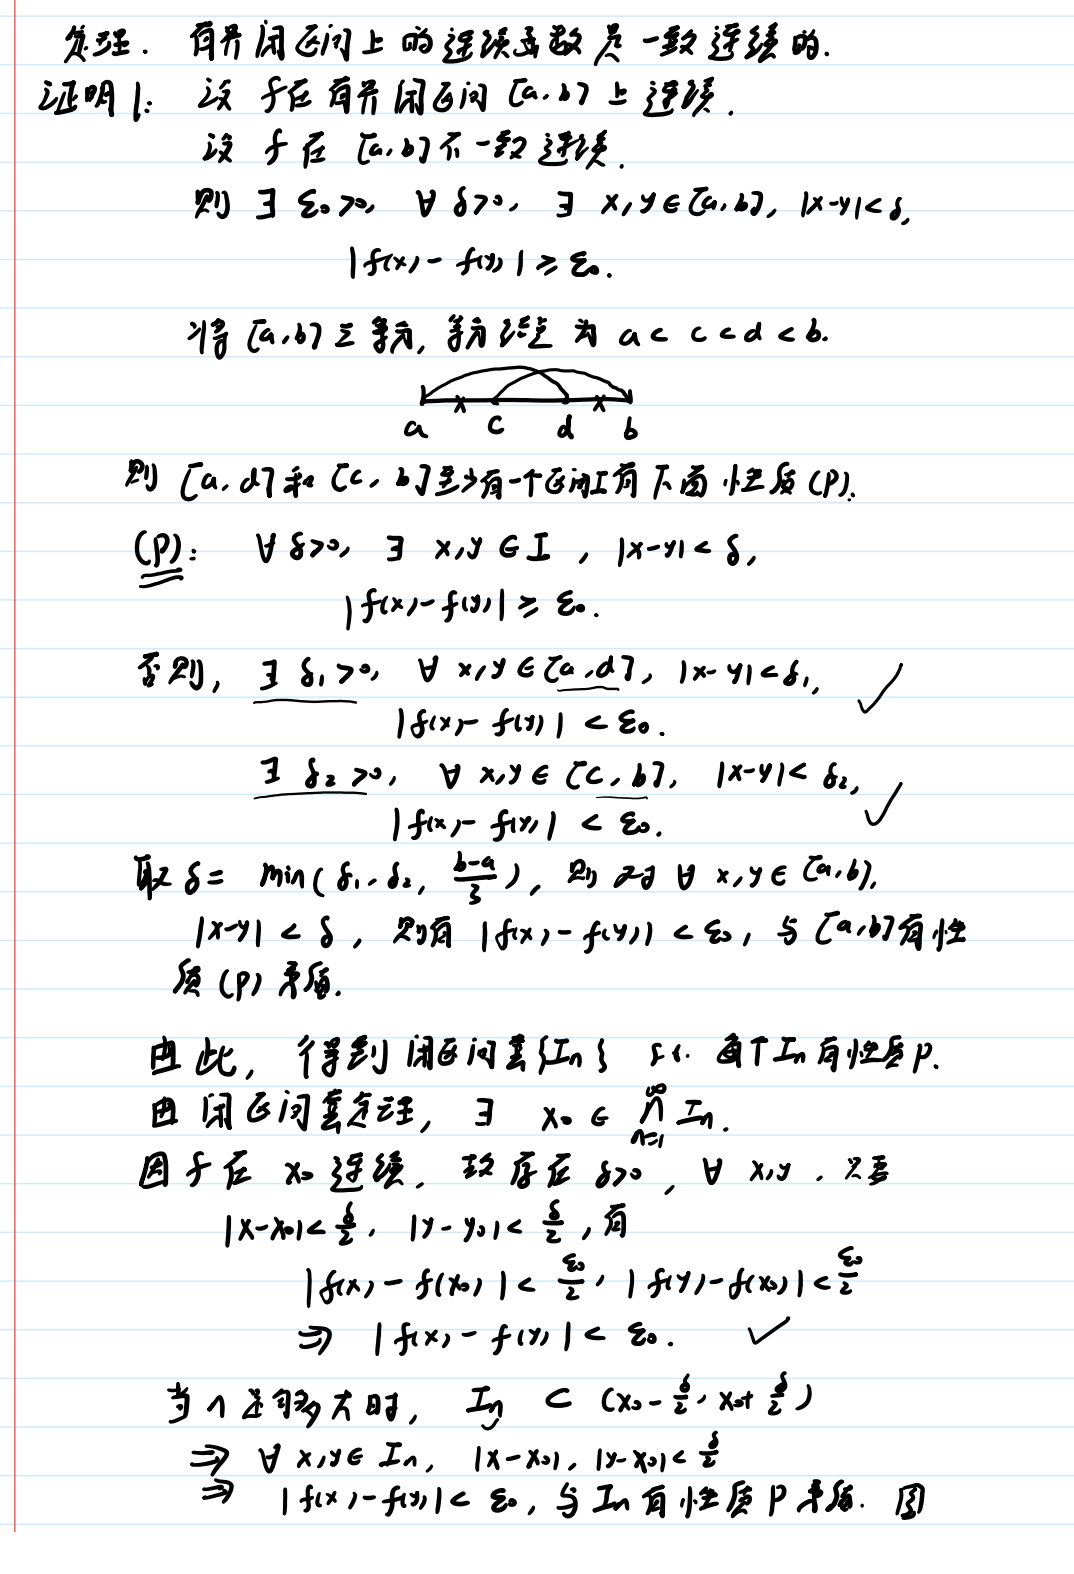 定理. 有界闭区间上的连续函数是一致连续的.
证明1: 设 f在有界闭区间 [a,b] 上连续.
设 f 在 [a,b] 不一致连续.
则 ∃ ε₀>0, ∀ δ>0, ∃ x,y∈[a,b], |x-y|<δ,
|f(x)-f(y)| ≥ ε₀.
将 [a,b] 三等分, 等分结点 为 a < c < d < b.
a c d b
则 [a,d] 和 [c,b] 至少有一个区间I有下面性质(P).
(P): ∀ δ>0, ∃ x,y ∈ I, |x-y| < δ,
|f(x)-f(y)| ≥ ε₀.
否则, ∃ δ₁>0, ∀ x,y ∈ [a,d], |x-y|<δ₁, ✓
|f(x)-f(y)| < ε₀.
∃ δ₂>0, ∀ x,y ∈ [c,b], |x-y|<δ₂, ✓
|f(x)-f(y)| < ε₀.
取 δ = min(δ₁,δ₂, (b-a)/3), 则对 ∀ x,y∈[a,b],
|x-y| < δ, 则有 |f(x)-f(y)| < ε₀, 与 [a,b]有性
质(P)矛盾.
由此, 得到闭区间套{In} s.t. 每个 In 有性质P.
由闭区间套定理, ∃ x₀ ∈ ⋂_{n=1}^{∞} In.
因 f 在 x₀ 连续, 故存在 δ>0, ∀ x,y, 只要
|x-x₀|<δ/2, |y-y₀|<δ/2, 有
|f(x)-f(x₀)| < ε₀/2, |f(y)-f(x₀)| < ε₀/2
⇒ |f(x)-f(y)| < ε₀. ✓
当 n 足够大时, In ⊂ (x₀-δ/2, x₀+δ/2)
⇒ ∀ x,y∈ In, |x-x₀|, |y-x₀|<δ/2
⇒ |f(x)-f(y)|< ε₀, 与 In 有性质P矛盾.